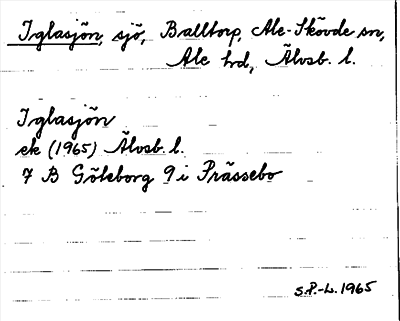 Iglasjön, sjö, Balltorp, Ale-Skövde sn,
Ale hd, Älvsb. l.
Iglasjön
ek (1965) Älvsb. l.
7 B Göteborg 9 i Prässebo
S.P.-L. 1965